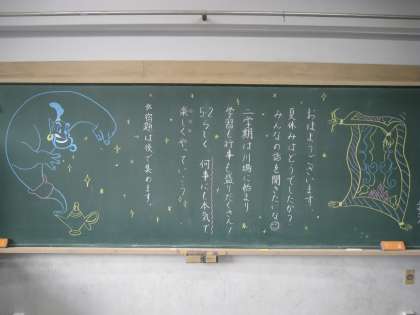 おはようございます。
夏休みはどうでしたか？
みんなの話を聞きたいな
二学期は川場に始まり
学習も行事も盛りだくさん！
5-2らしく、何事にも本気で
楽しくやっていこう
※宿題は後で集めます。